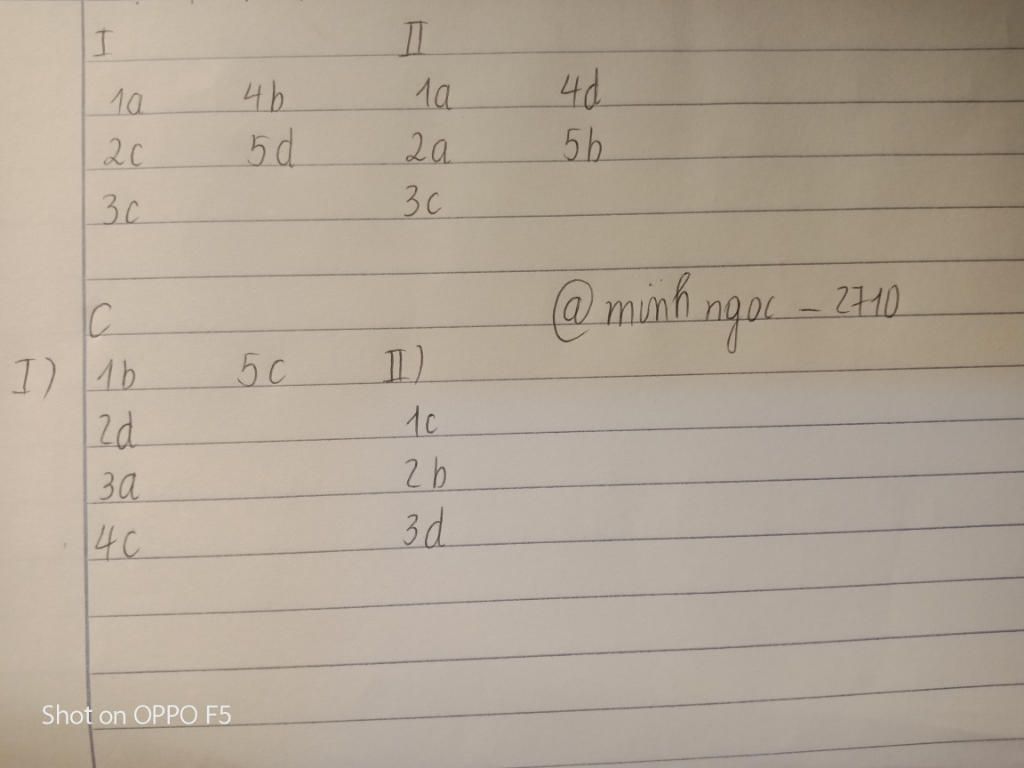 I II
1a 4b 1a 4d
2c 5d 2a 5b
3c 3c
C @minhngoc - 2710
I) 1b 5c II)
2d 1c
3a 2b
4c 3d
Shot on OPPO F5